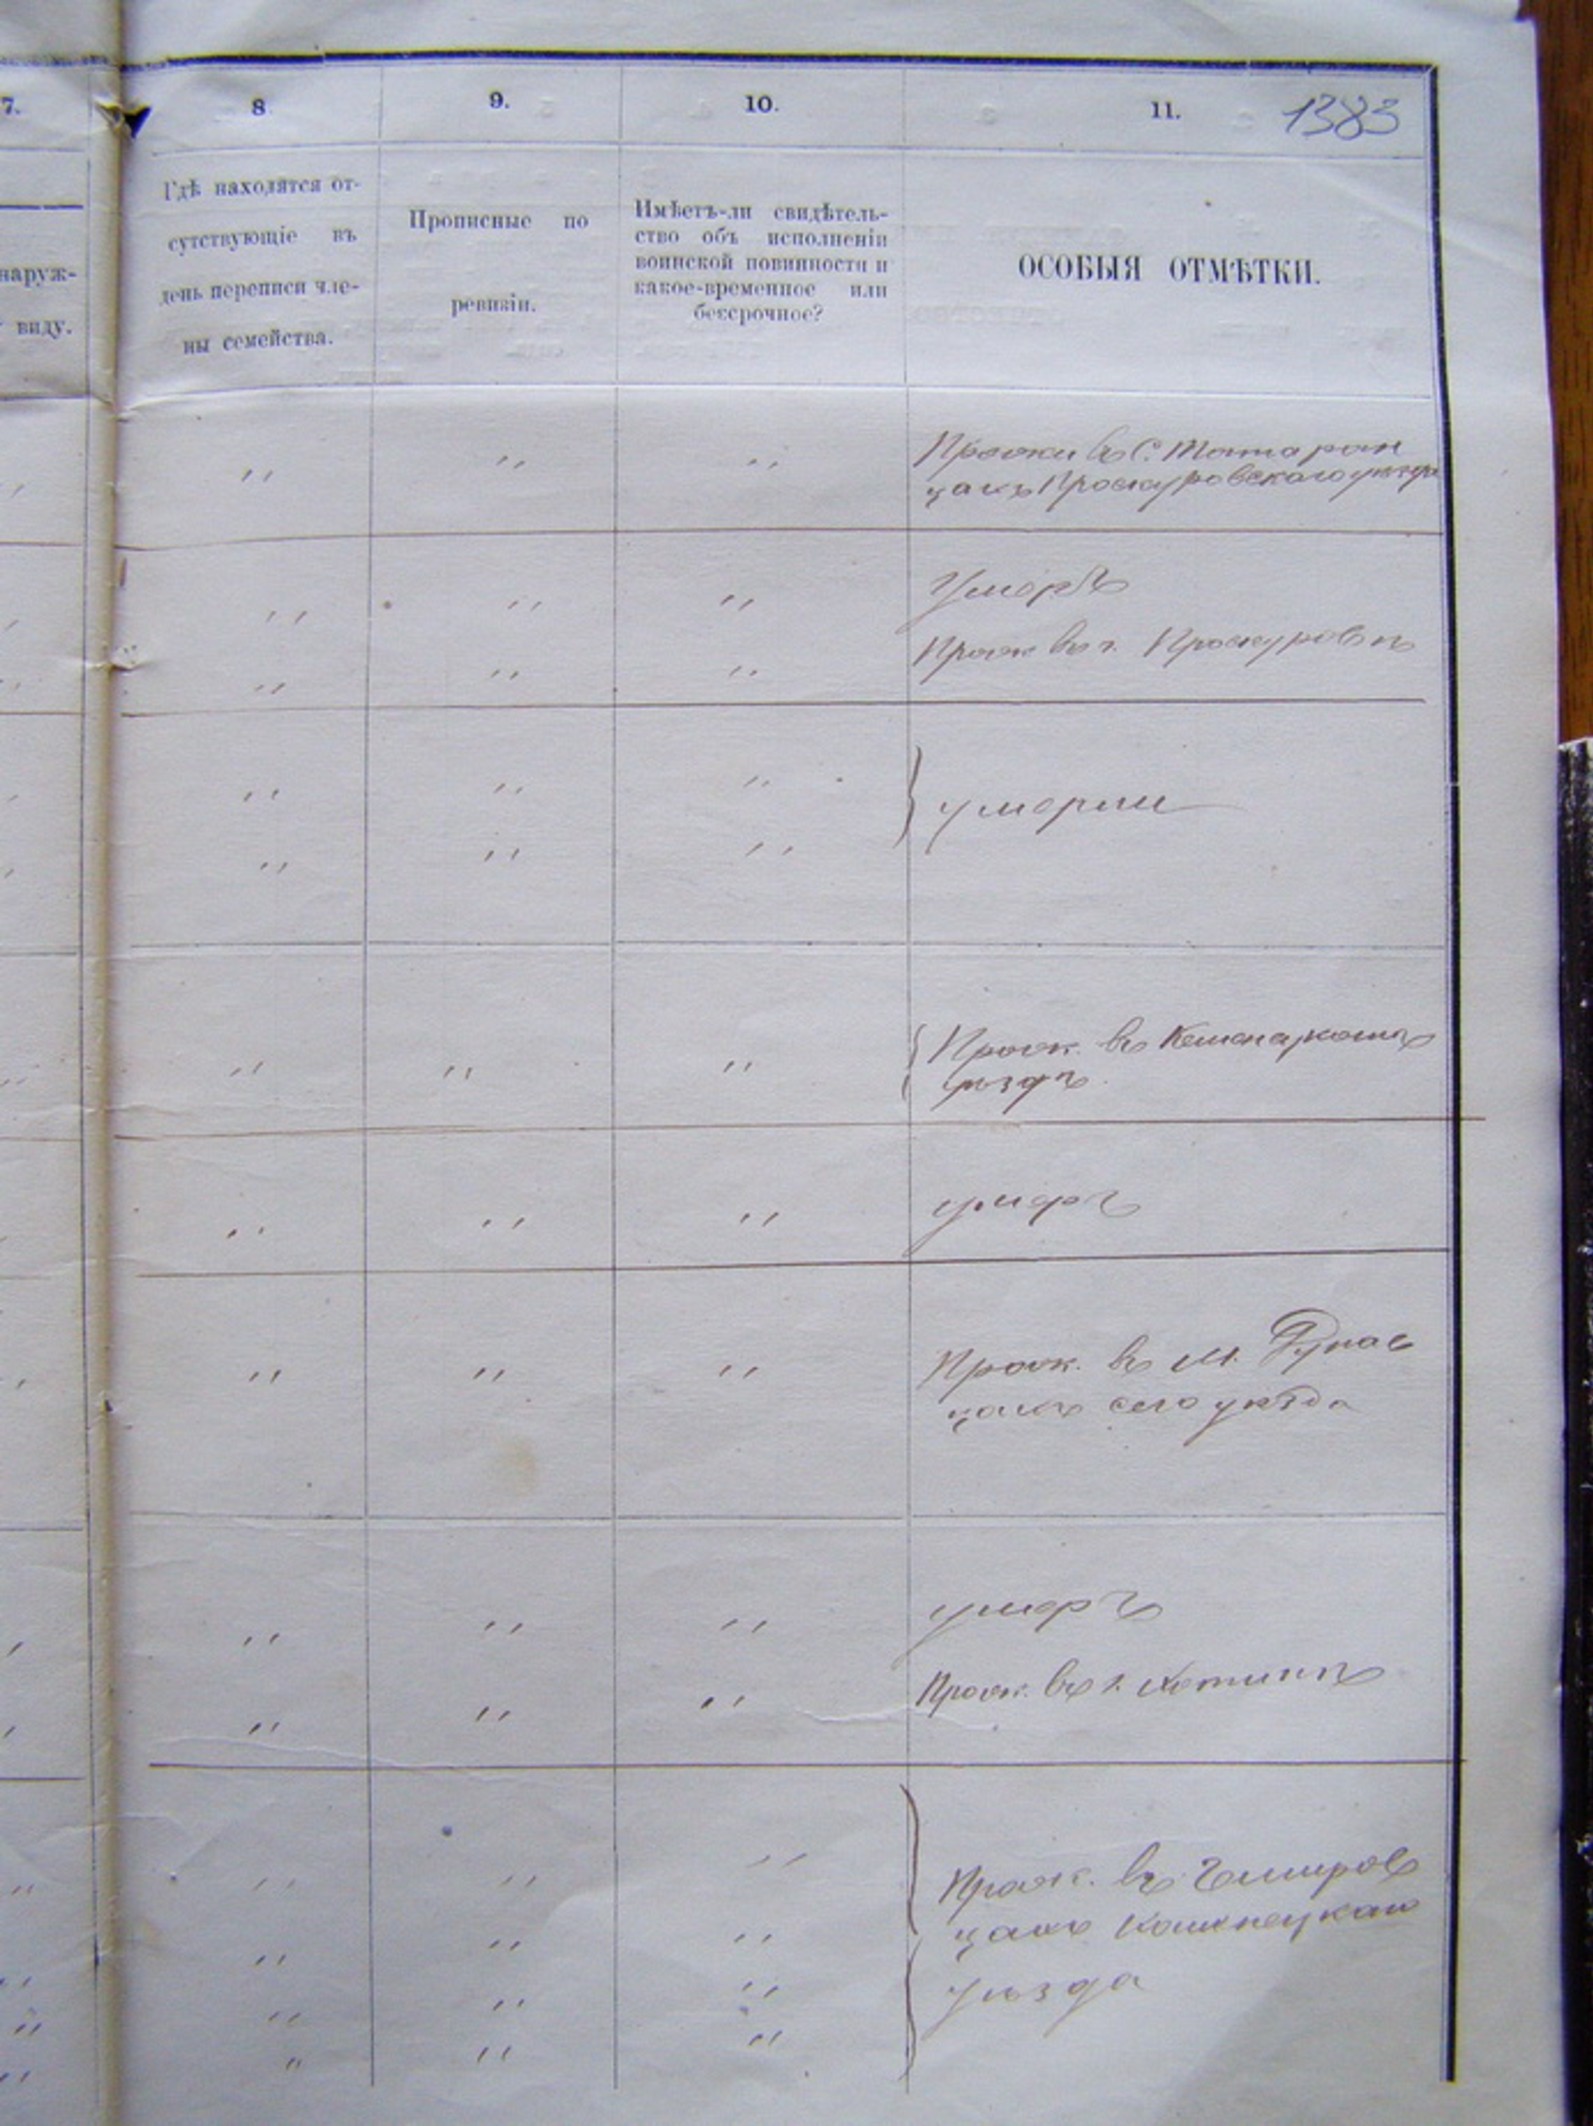 7.
8
9.
10.
11.
1383
наруж-
виду.
Гдѣ находятся от-
сутствующіе въ
день переписи чле-
ны семейства.
Прописные по
ревизіи.
Имѣетъ-ли свидѣтель-
ство объ исполненіи
воинской повинности и
какое-временное или
бессрочное?
ОСОБЫЯ ОТМѢТКИ.
" " " въ С. Татарин
цахъ Проскуровскаго уѣзда
" " " Умеръ
" " " Прож въ г. Проскуровѣ
" " " умерли
" " "
" " " Прож. въ
уѣздѣ
" " " умеръ
" " " Прож. въ м. Дунае
цахъ сего уѣзда
" " " умеръ
" " " Прож. въ г. Хотинѣ
" " " Прож. въ
" " " цахъ
" " " уѣзда
" " "